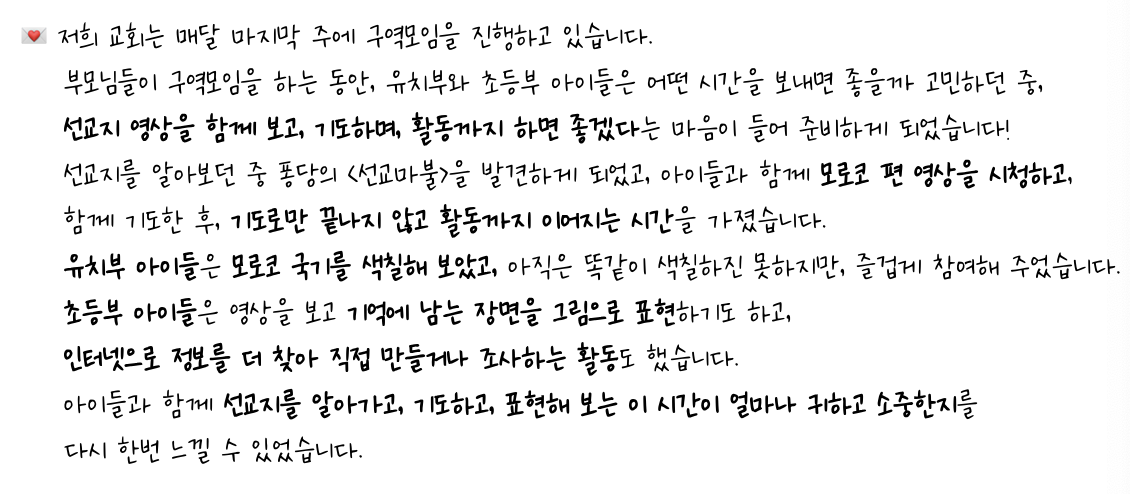 💌 저희 교회는 매달 마지막 주에 구역모임을 진행하고 있습니다.
부모님들이 구역모임을 하는 동안, 유치부와 초등부 아이들은 어떤 시간을 보내면 좋을까 고민하던 중,
선교지 영상을 함께 보고, 기도하며, 활동까지 하면 좋겠다는 마음이 들어 준비하게 되었습니다!
선교지를 알아보던 중 퐁당의 <선교마불>을 발견하게 되었고, 아이들과 함께 모로코 편 영상을 시청하고,
함께 기도한 후, 기도로만 끝나지 않고 활동까지 이어지는 시간을 가졌습니다.
유치부 아이들은 모로코 국기를 색칠해 보았고, 아직은 똑같이 색칠하진 못하지만, 즐겁게 참여해 주었습니다.
초등부 아이들은 영상을 보고 기억에 남는 장면을 그림으로 표현하기도 하고,
인터넷으로 정보를 더 찾아 직접 만들거나 조사하는 활동도 했습니다.
아이들과 함께 선교지를 알아가고, 기도하고, 표현해 보는 이 시간이 얼마나 귀하고 소중한지를
다시 한번 느낄 수 있었습니다.